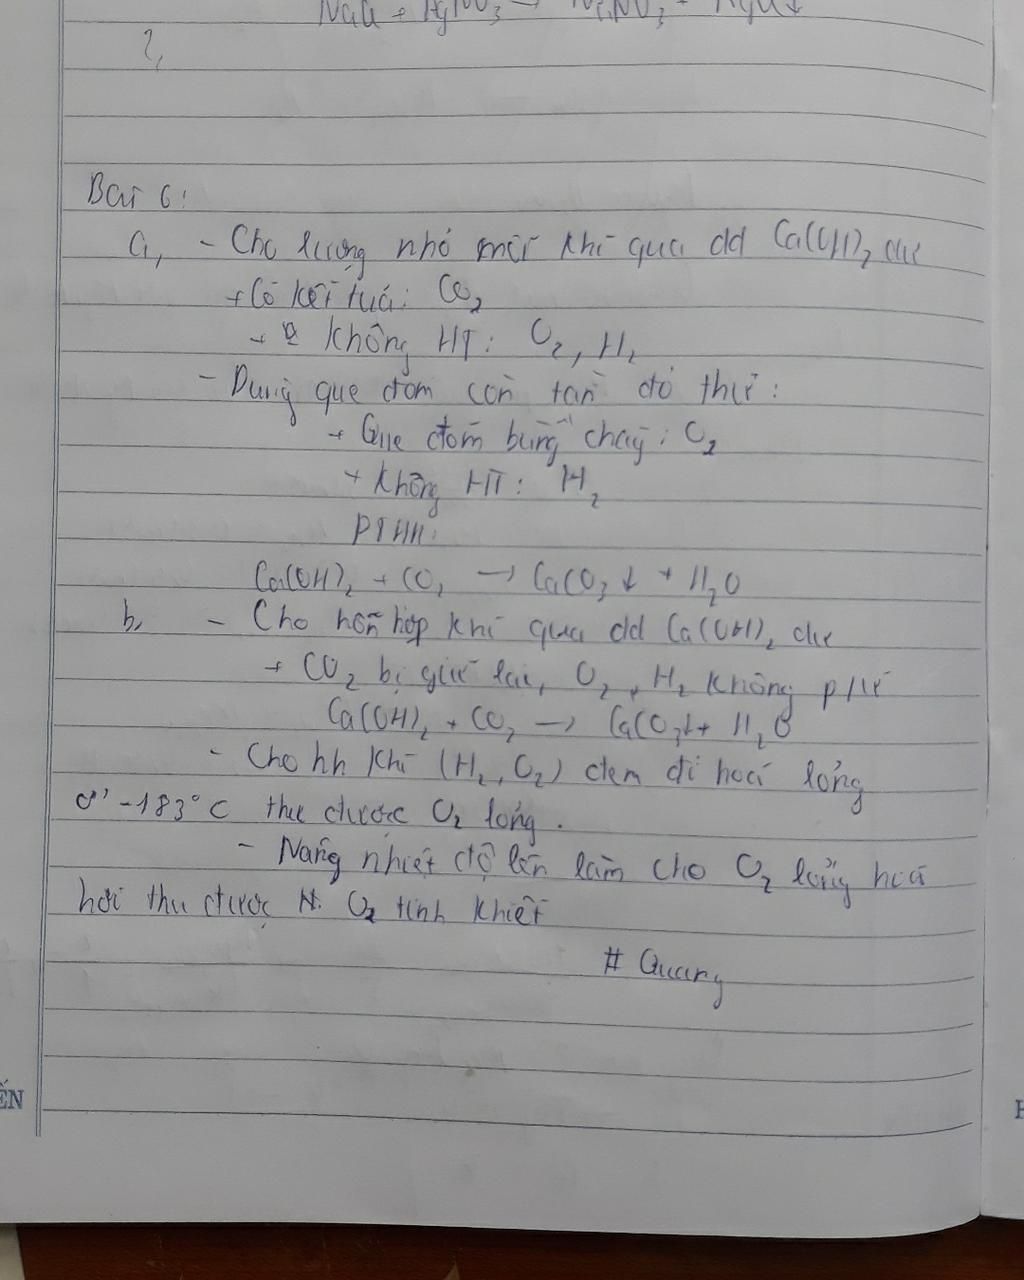 NaCl + AgNO3 → NaNO3 + AgCl↓
2,
Bài 6:
a, - Cho lượng nhỏ mỗi khí qua dd Ca(OH)2 dư
+ Có kết tủa: CO2
+ Không HT: O2, H2
- Dùng que đóm còn tàn đỏ thử:
+ Que đóm bùng cháy: O2
+ Không HT: H2
PTHH:
Ca(OH)2 + CO2 → CaCO3↓ + H2O
b, - Cho hỗn hợp khí qua dd Ca(OH)2 dư
+ CO2 bị giữ lại, O2, H2 không pứ
Ca(OH)2 + CO2 → CaCO3↓ + H2O
- Cho hh khí (H2, O2) đem đi hoá lỏng
ở -183°C thu được O2 lỏng.
- Nâng nhiệt độ lên làm cho O2 lỏng hoá
hơi thu được O2 tinh khiết
# Quang
ẾN
H